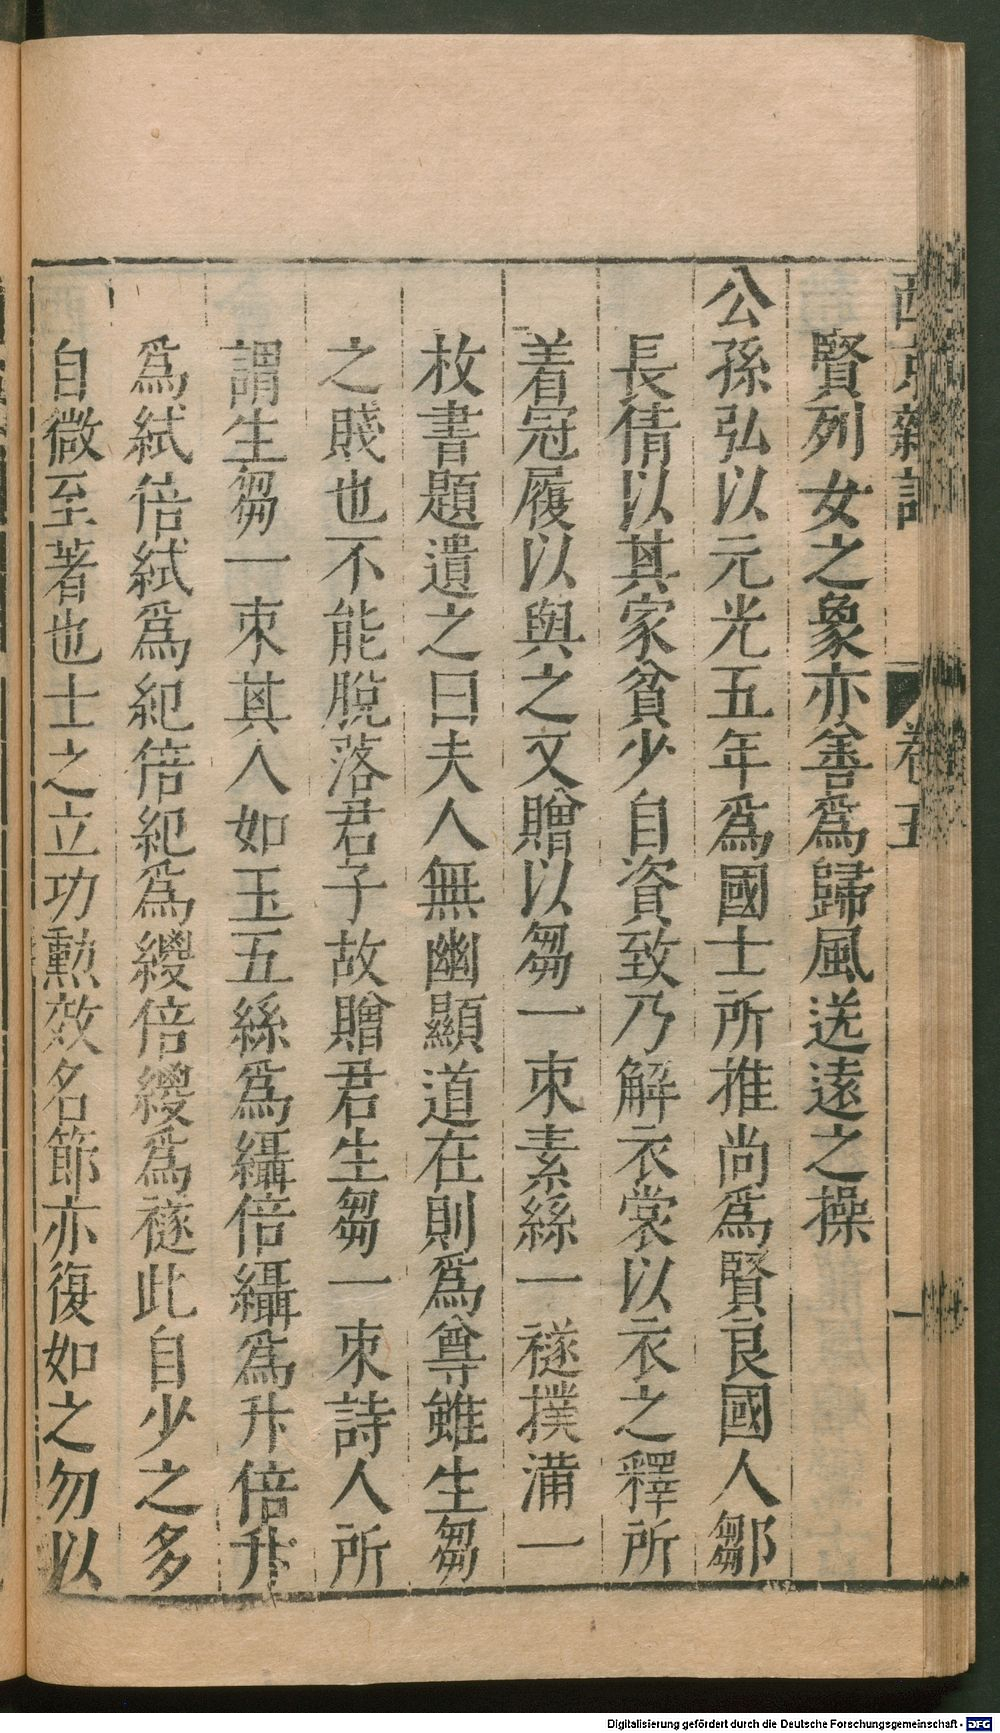 西京雜記 卷五 一
賢列女之象亦善爲歸風送遠之操
公孫弘以元光五年爲國士所推尚爲賢良國人鄒
長倩以其家貧少自資致乃解衣裳以衣之釋所
着冠履以與之又贈以芻一束素絲一襚撲滿一
枚書題遺之曰夫人無幽顯道在則爲尊雖生芻
之賤也不能脫落君子故贈君生芻一束詩人所
謂生芻一束其人如玉五絲爲䌰倍䌰爲升倍升
爲紽倍紽爲紀倍紀爲緵倍緵爲襚此自少之多
自微至著也士之立功勲效名節亦復如之勿以
Digitalisierung gefördert durch die Deutsche Forschungsgemeinschaft - DFG